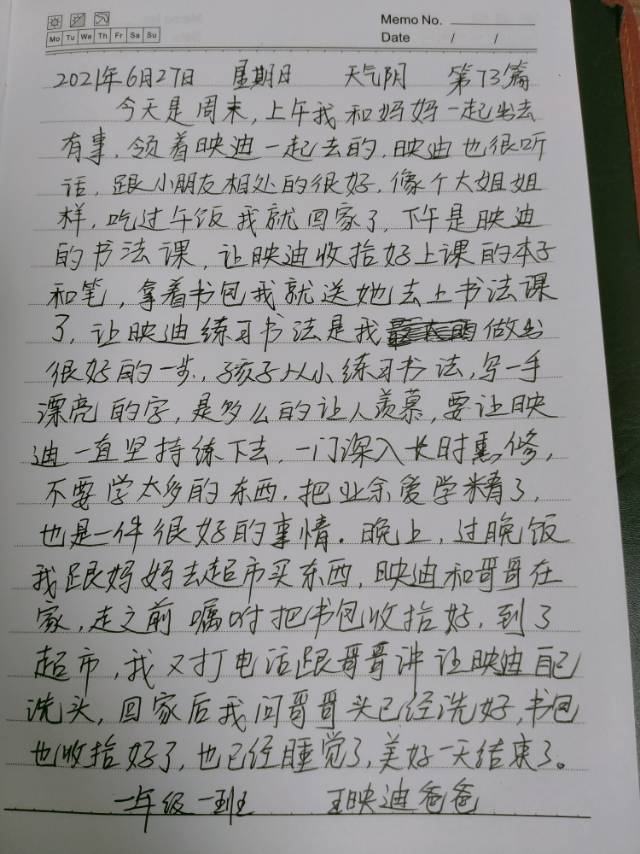 Memo No.
Mo Tu We Th Fr Sa Su
Date / /
2021年6月27日 星期日 天气阴 第73篇
今天是周末,上午我和妈妈一起出去
有事,领着映迪一起去的,映迪也很听
话,跟小朋友相处的很好,像个大姐姐
样,吃过午饭我就回家了,下午是映迪
的书法课,让映迪收拾好上课的本子
和笔,拿着书包我就送她去上书法课
了,让映迪练习书法是我做出
很好的一步,孩子从小练习书法,写一手
漂亮的字,是多么的让人羡慕,要让映
迪一直坚持练下去,一门深入长时熏修,
不要学太多的东西,把业余爱学精了,
也是一件很好的事情。晚上,过晚饭
我跟妈妈去超市买东西,映迪和哥哥在
家,走之前嘱咐把书包收拾好,到了
超市,我又打电话跟哥哥讲让映迪自己
洗头,回家后我问哥哥头已经洗好,书包
也收拾好了,也已经睡觉了,美好一天结束了。
一年级一班 王映迪爸爸